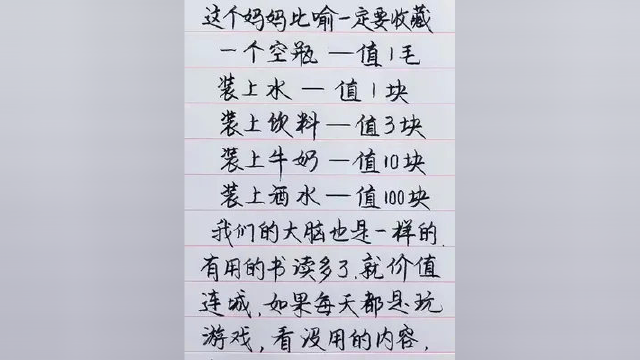 这个妈妈比喻一定要收藏
一个空瓶一值1毛
装上水一值1块
装上饮料一值3块
装上牛奶一值10块
装上酒水一值100块
我们的大脑也是一样的.
有用的书读多了.就价值
连城.如果每天都是玩
游戏,看没用的内容,